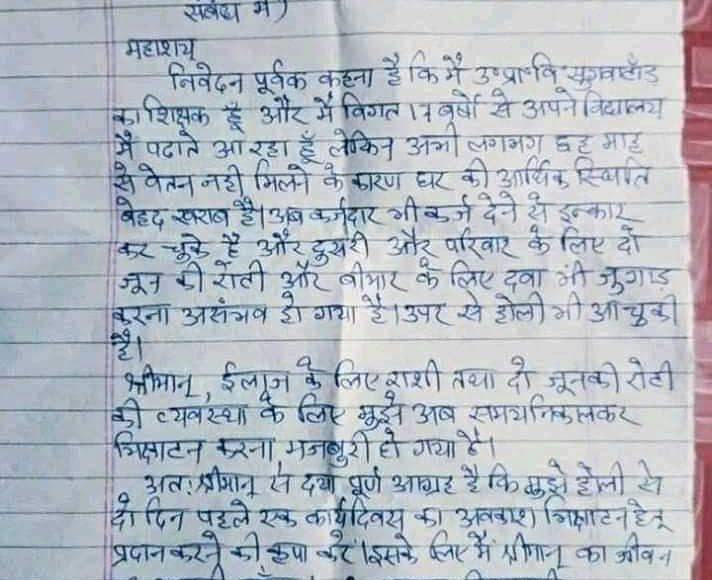 संबंध में)
महाशय
निवेदन पूर्वक कहना है कि मैं उ॰प्रा॰वि॰
का शिक्षक हूँ और मैं विगत 17 वर्षों से अपने विद्यालय
में पढाते आ रहा हूँ लेकिन अभी लगभग छह माह
से वेतन नही मिलने के कारण घर की आर्थिक स्थिति
बेहद खराब है।अब कर्जदार भी कर्ज देने से इन्कार
कर चुके है और दुसरी और परिवार के लिए दो
जून की रोटी और बीमार के लिए दवा भी जुगाड़
करना असंभव हो गया है।उपर से होली भी आ चुकी
है।
श्रीमान्, ईलाज के लिए राशी तथा दो जून की रोटी
की व्यवस्था के लिए मुझे अब समय निकलकर
भिक्षाटन करना मजबुरी हो गया है।
अत: श्रीमान् से दया पूर्ण आग्रह है कि मुझे होली से
दो दिन पहले एक कार्य दिवस का अवकाश भिक्षाटन हेतू
प्रदान करने की कृपा करें।इसके लिए मैं श्रीमान् का जीवन